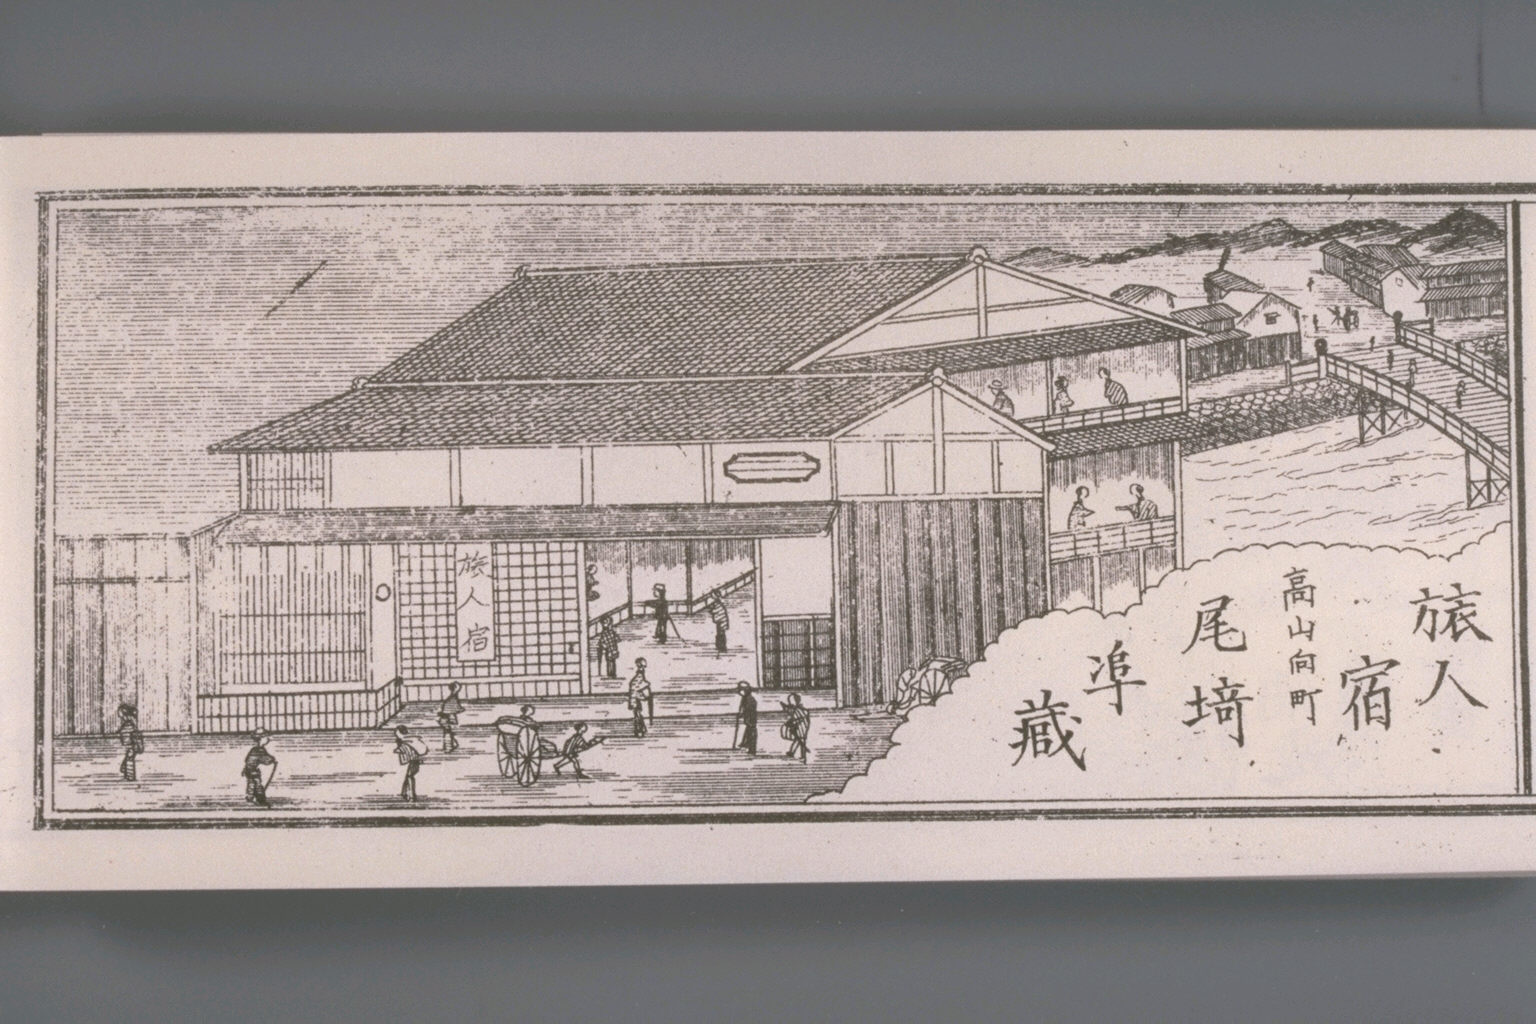 旅人宿
高山向町
尾埼埠蔵
旅人宿